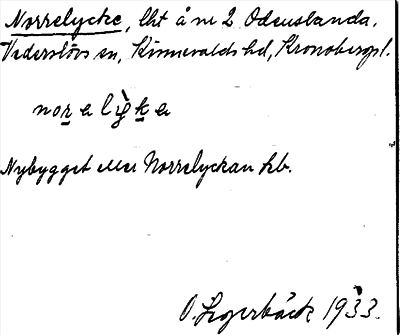 Norrelycke, lht å nr 2 Odenslanda,
Vederslövs sn, Kinnevalds hd, Kronobergs l.
nor a l i̇̀g k a
Nybygget eller Norrelyckan kb.
O. Legerbäck 1933.